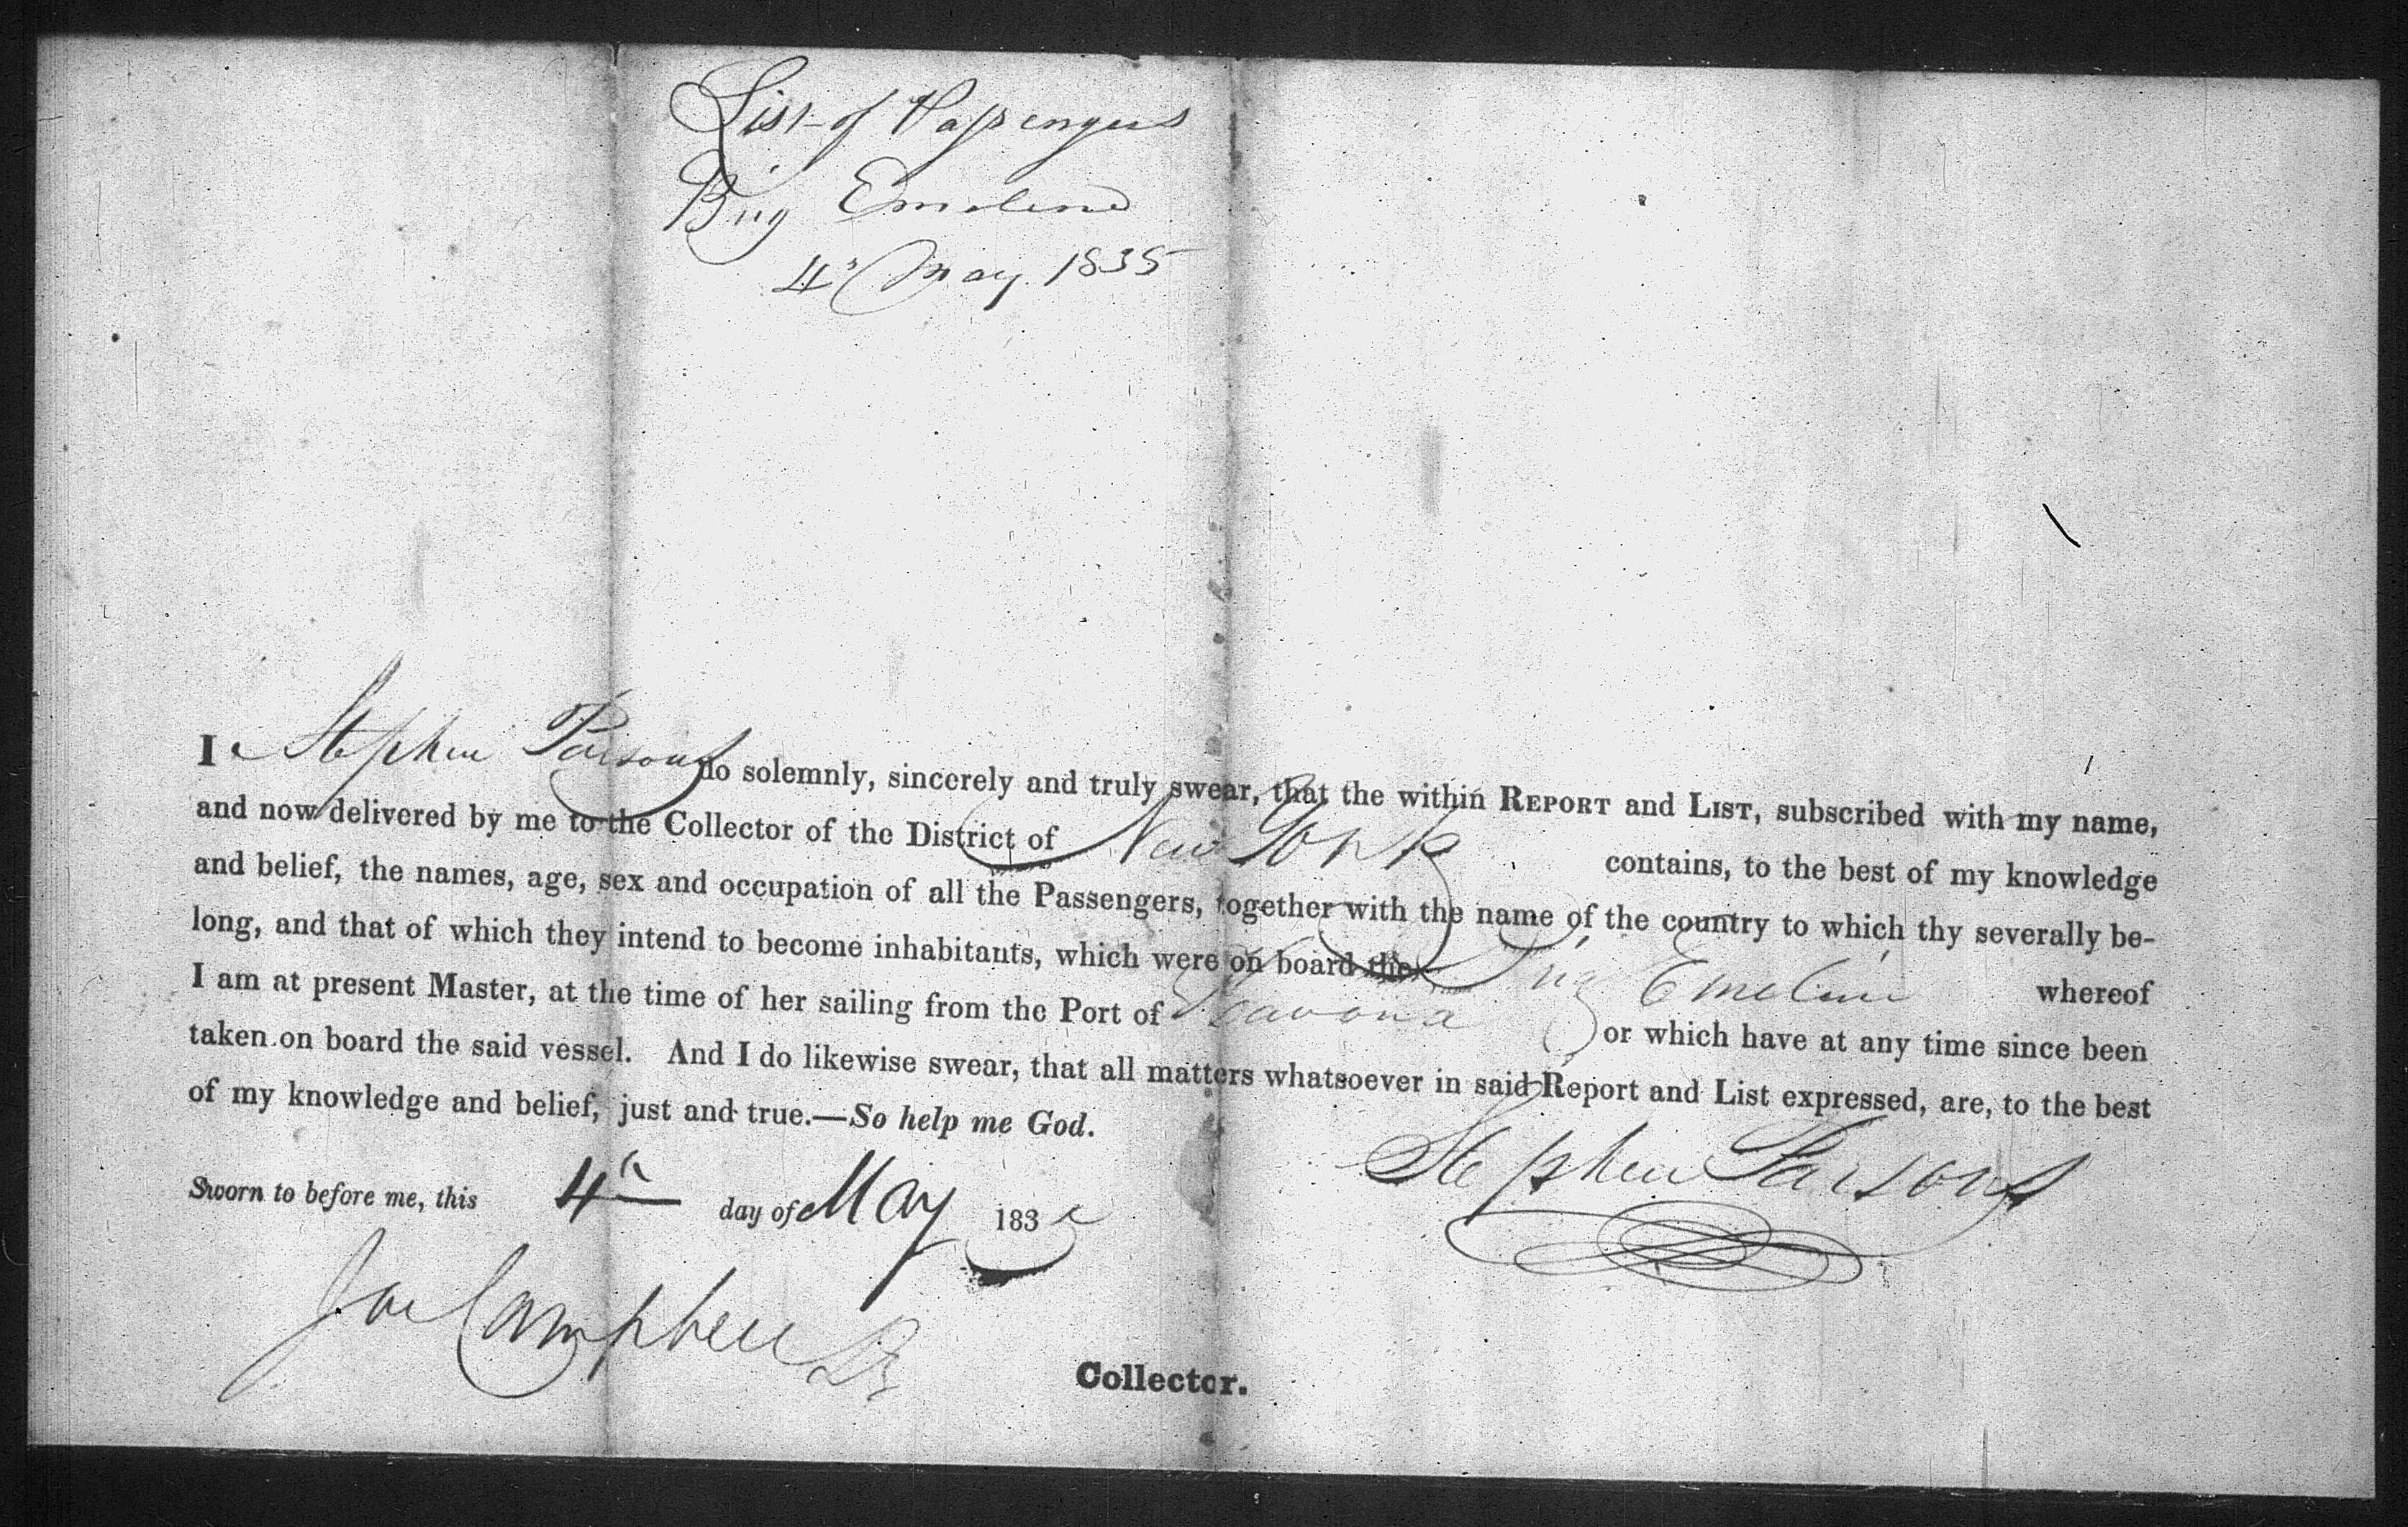 List of Passengers
Brig Emeline
4th May. 1835
I Stephen Parsons do solemnly, sincerely and truly swear, that the within REPORT and LIST, subscribed with my name,
and now delivered by me to the Collector of the District of New York contains, to the best of my knowledge
and belief, the names, age, sex and occupation of all the Passengers, together with the name of the country to which thy severally be-
long, and that of which they intend to become inhabitants, which were on board the Brig Emeline whereof
I am at present Master, at the time of her sailing from the Port of Havana or which have at any time since been
taken on board the said vessel. And I do likewise swear, that all matters whatsoever in said Report and List expressed, are, to the best
of my knowledge and belief, just and true.—So help me God.
Stephen Parsons
Sworn to before me, this 4th day of May 183
Campbell
Collector.